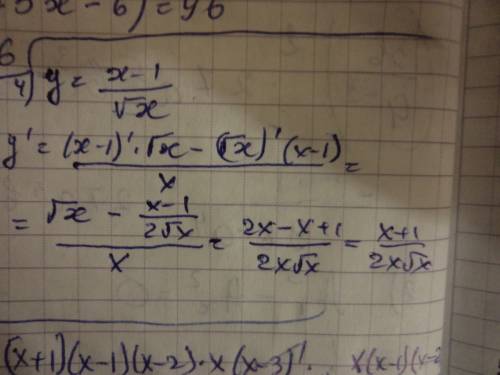 5x-6)=96
6
4) y = \frac{x-1}{\sqrt{x}}
y' = \frac{(x-1)'·\sqrt{x} - (\sqrt{x})'(x-1)}{x} =
= \frac{\sqrt{x} - \frac{x-1}{2\sqrt{x}}}{x} = \frac{2x-x+1}{2x\sqrt{x}} = \frac{x+1}{2x\sqrt{x}}
(x+1)(x-1)(x-2)·x(x-3)' . x(x-1)(x-2